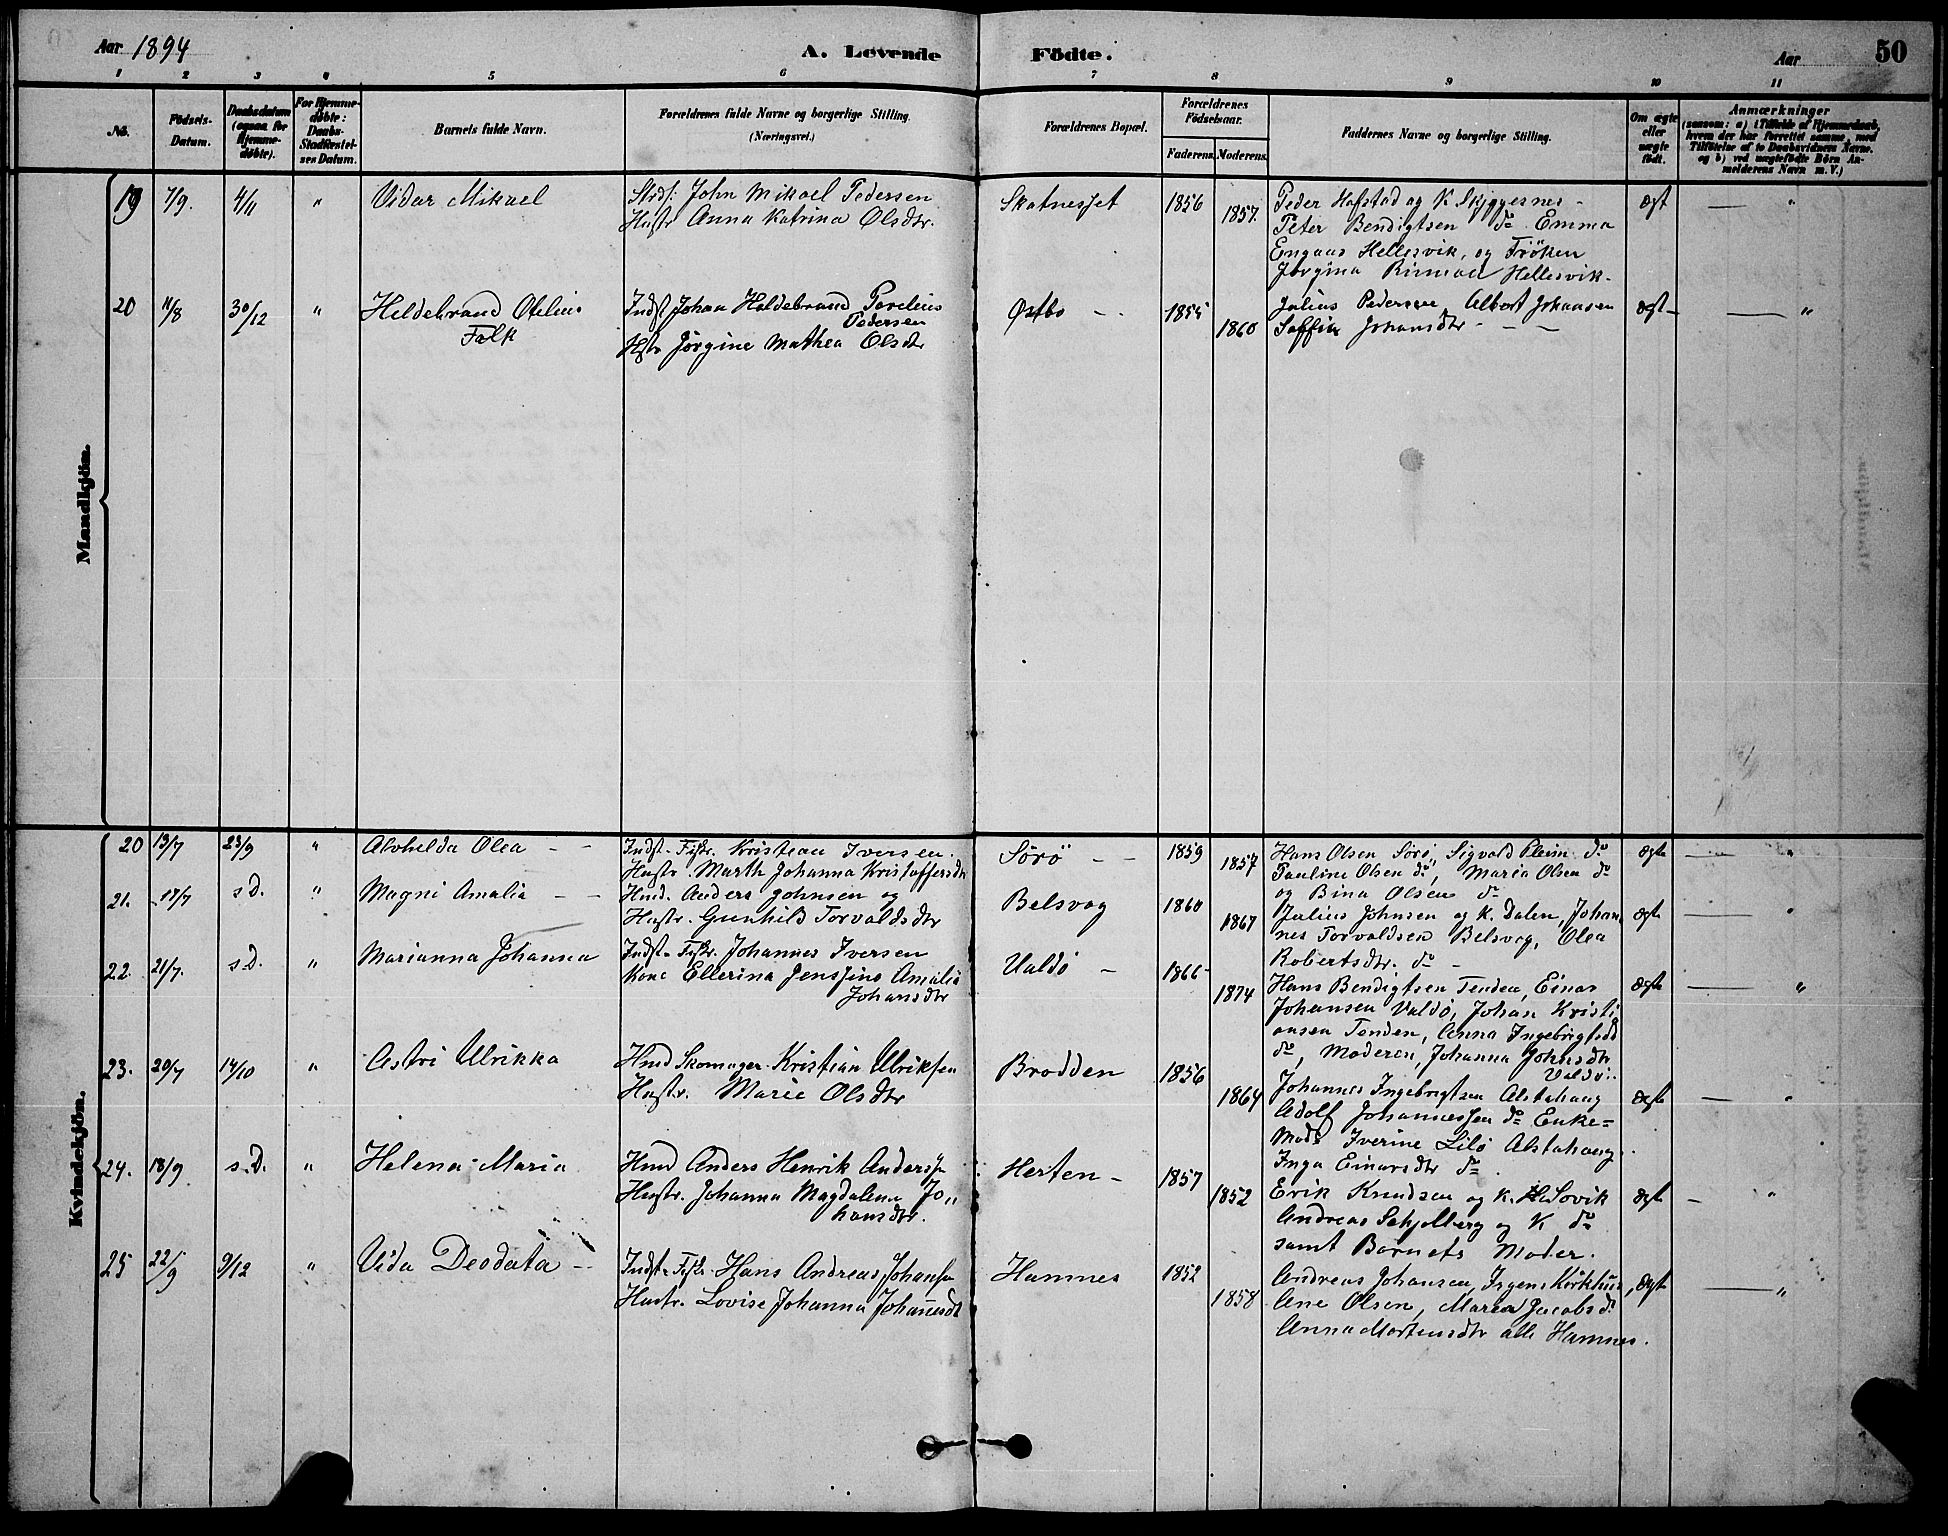 Aar 1894
A. Levende Födte.
Aar
50
1 2 3 4 5 6 7 8 9 10 11
No.
Födsels-
Datum.
Daabsdatum
(ogsaa for
Hjemme-
döbte).
For Hjemme-
döbte:
Daabs-
Stadfæstel-
ses Datum.
Barnets fulde Navn.
Forældrenes fulde Navne og borgerlige Stilling.
(Næringsvei.)
Forældrenes Bopæl.
Forældrenes
Födselsaar.
Faderens. Moderens.
Faddernes Navne og borgerlige Stilling.
Om ægte
eller
uægte
födt.
Anmærkninger
(saasom: a) i Tilfælde af Hjemmedaab,
hvem der har forrettet samme, med
Tilföielse af to Daabsvidners Navne.
og b) ved uægtefödte Börn An-
melderens Navn m. V.)
Mandkjön.
19 7/9. 4/11 " Vidar Mikael
John Mikael Pedersen
Hustr Anna Katrina Olsdtr.
Skatnesset 1856 1857.
Peder Hofstad og K Skjeggesnes -
Peter Bendigtsen do Emma
Engaas Hellesvik, og Fröken
Jörgina Hellesvik.
Ægt "
20 11/8 30/12 " Heldebrand Otelius
Falk
Indst Johan Heldebrand Parelius
Pedersen
Hstr Jörgine Mathea Olsdtr
Østbo - - 1855 1860
Julius Pedersen Albert Johansen
Soffie Johansdtr - - -
Ægt "
Kvindekjön.
20 13/7 23/9 " Alvhelda Olea - -
Indst - Fiskr. Kristian Iversen.
Hustr. Marth Johanna Kristoffersdtr
Sörö - - 1859 1857
Hans Olsen Sörö, Sigvald Pleim do
Pauline Olsen do, Maria Olsen do
og Bina Olsen do
Ægte "
21. 17/7 s.D. " Magni Amalia - -
Hmd. Anders Johnsen og
Hustr. Gunhild Torvaldsdtr
Belsvog 1860 1867
Julius Johnsen og K. Dalen, Johan
nes Torvaldsen Belsvog, Olea
Robertsdtr. do -
Ægte "
22. 21/7. s.D. " Marianna Johanna
Indst - Fiskr. Johannes Iversen
Kone Ellerina Jenssine Amalia
Johansdtr
Ualdö - 1866 - 1874
Hans Bendigtsen Tenden, Einar
Johansen Valdö, Johan Kristi
ansen Tenden, Anna Ingebrigtsdtr
do, Moderen, Johanna Johnsdtr
Valdö.
Ægte "
23. 20/7 14/10 " Astri Ulrikka
Hmd Skomager Kristian Ulriksen
Hustr. Marie Olsdtr
Brodden 1856 1864
Johannes Ingebrigtsen Alstahaug
Adolf Johannessen do Enke=
Mad. Iverine Lilö Alstahaug.
Inga Einarsdtr do.
Ægte "
24. 18/9. s.D. " Helena Maria
Hmd Anders Henrik Anders
Hustr. Johanna Magdalena Jo"
hansdtr.
Herten - 1857 1852
Erik Knudsen og K. Sovik
Andreas Schjelberg og K do
samt Barnets Moder.
Ægte - "
25 22/9 9/12 " Vida Deodata -
Indst - Fiskr. Hans Andreas Johans
Hustr. Lovise Johanna Johansdt
Hamnes 1852 1858
Andreas Johansen,
Ane Olsen, Maria Jacobsdr
Anna Mortensdtr alle Hamnes.
Ægte "